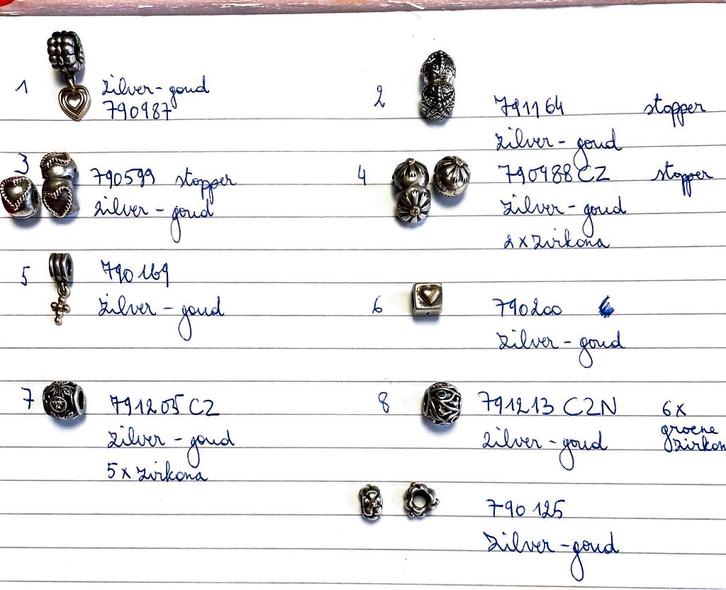 1 zilver-goud
790987
2 791164 stopper
zilver-goud
3 790599 stopper
zilver-goud
4 790988CZ stopper
zilver-goud
2xzirkona
5 790169
zilver-goud
6 790200
zilver-goud
7 791205 CZ
zilver-goud
5xzirkona
8 791213 CZN 6x
zilver-goud groene
zirkon
790125
zilver-goud